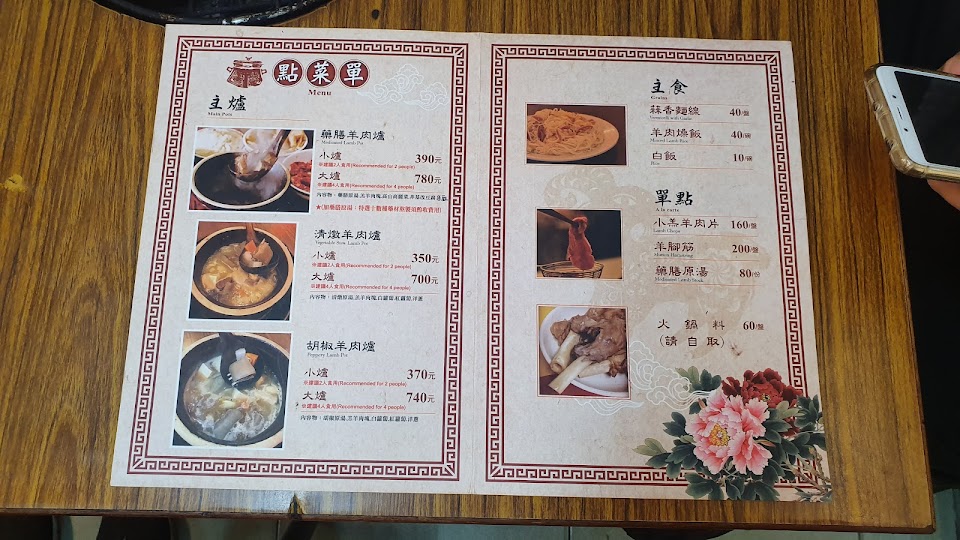 點菜單
Menu
主爐
Main Pots
藥膳羊肉爐
Medicated Lamb Pot
小爐 390元
※建議2人食用(Recommended for 2 people)
大爐 780元
※建議4人食用(Recommended for 4 people)
內容物：藥膳原湯,羔羊肉塊,高山高麗菜,非基改豆腐
★(加藥膳原湯：特選十數種藥材熬製須酌收費用)
清燉羊肉爐
Vegetable Stew Lamb Pot
小爐 350元
※建議2人食用(Recommended for 2 people)
大爐 700元
※建議4人食用(Recommended for 4 people)
內容物：清燉原湯,羔羊肉塊,白蘿蔔,紅蘿蔔,洋蔥
胡椒羊肉爐
Peppery Lamb Pot
小爐 370元
※建議2人食用(Recommended for 2 people)
大爐 740元
※建議4人食用(Recommended for 4 people)
內容物：胡椒原湯,羔羊肉塊,白蘿蔔,紅蘿蔔,洋蔥
主食
Grains
蒜香麵線 40/盤
Vermicelli with Garlic
羊肉燥飯 40/碗
Minced Lamb Rice
白飯 10/碗
Rice
單點
A la carte
小羔羊肉片 160/盤
Lamb Chops
羊腳筋 200/盤
Mutton Hamstring
藥膳原湯 80/份
Medicated Lamb Stock
火鍋料 60/盤
(請自取)